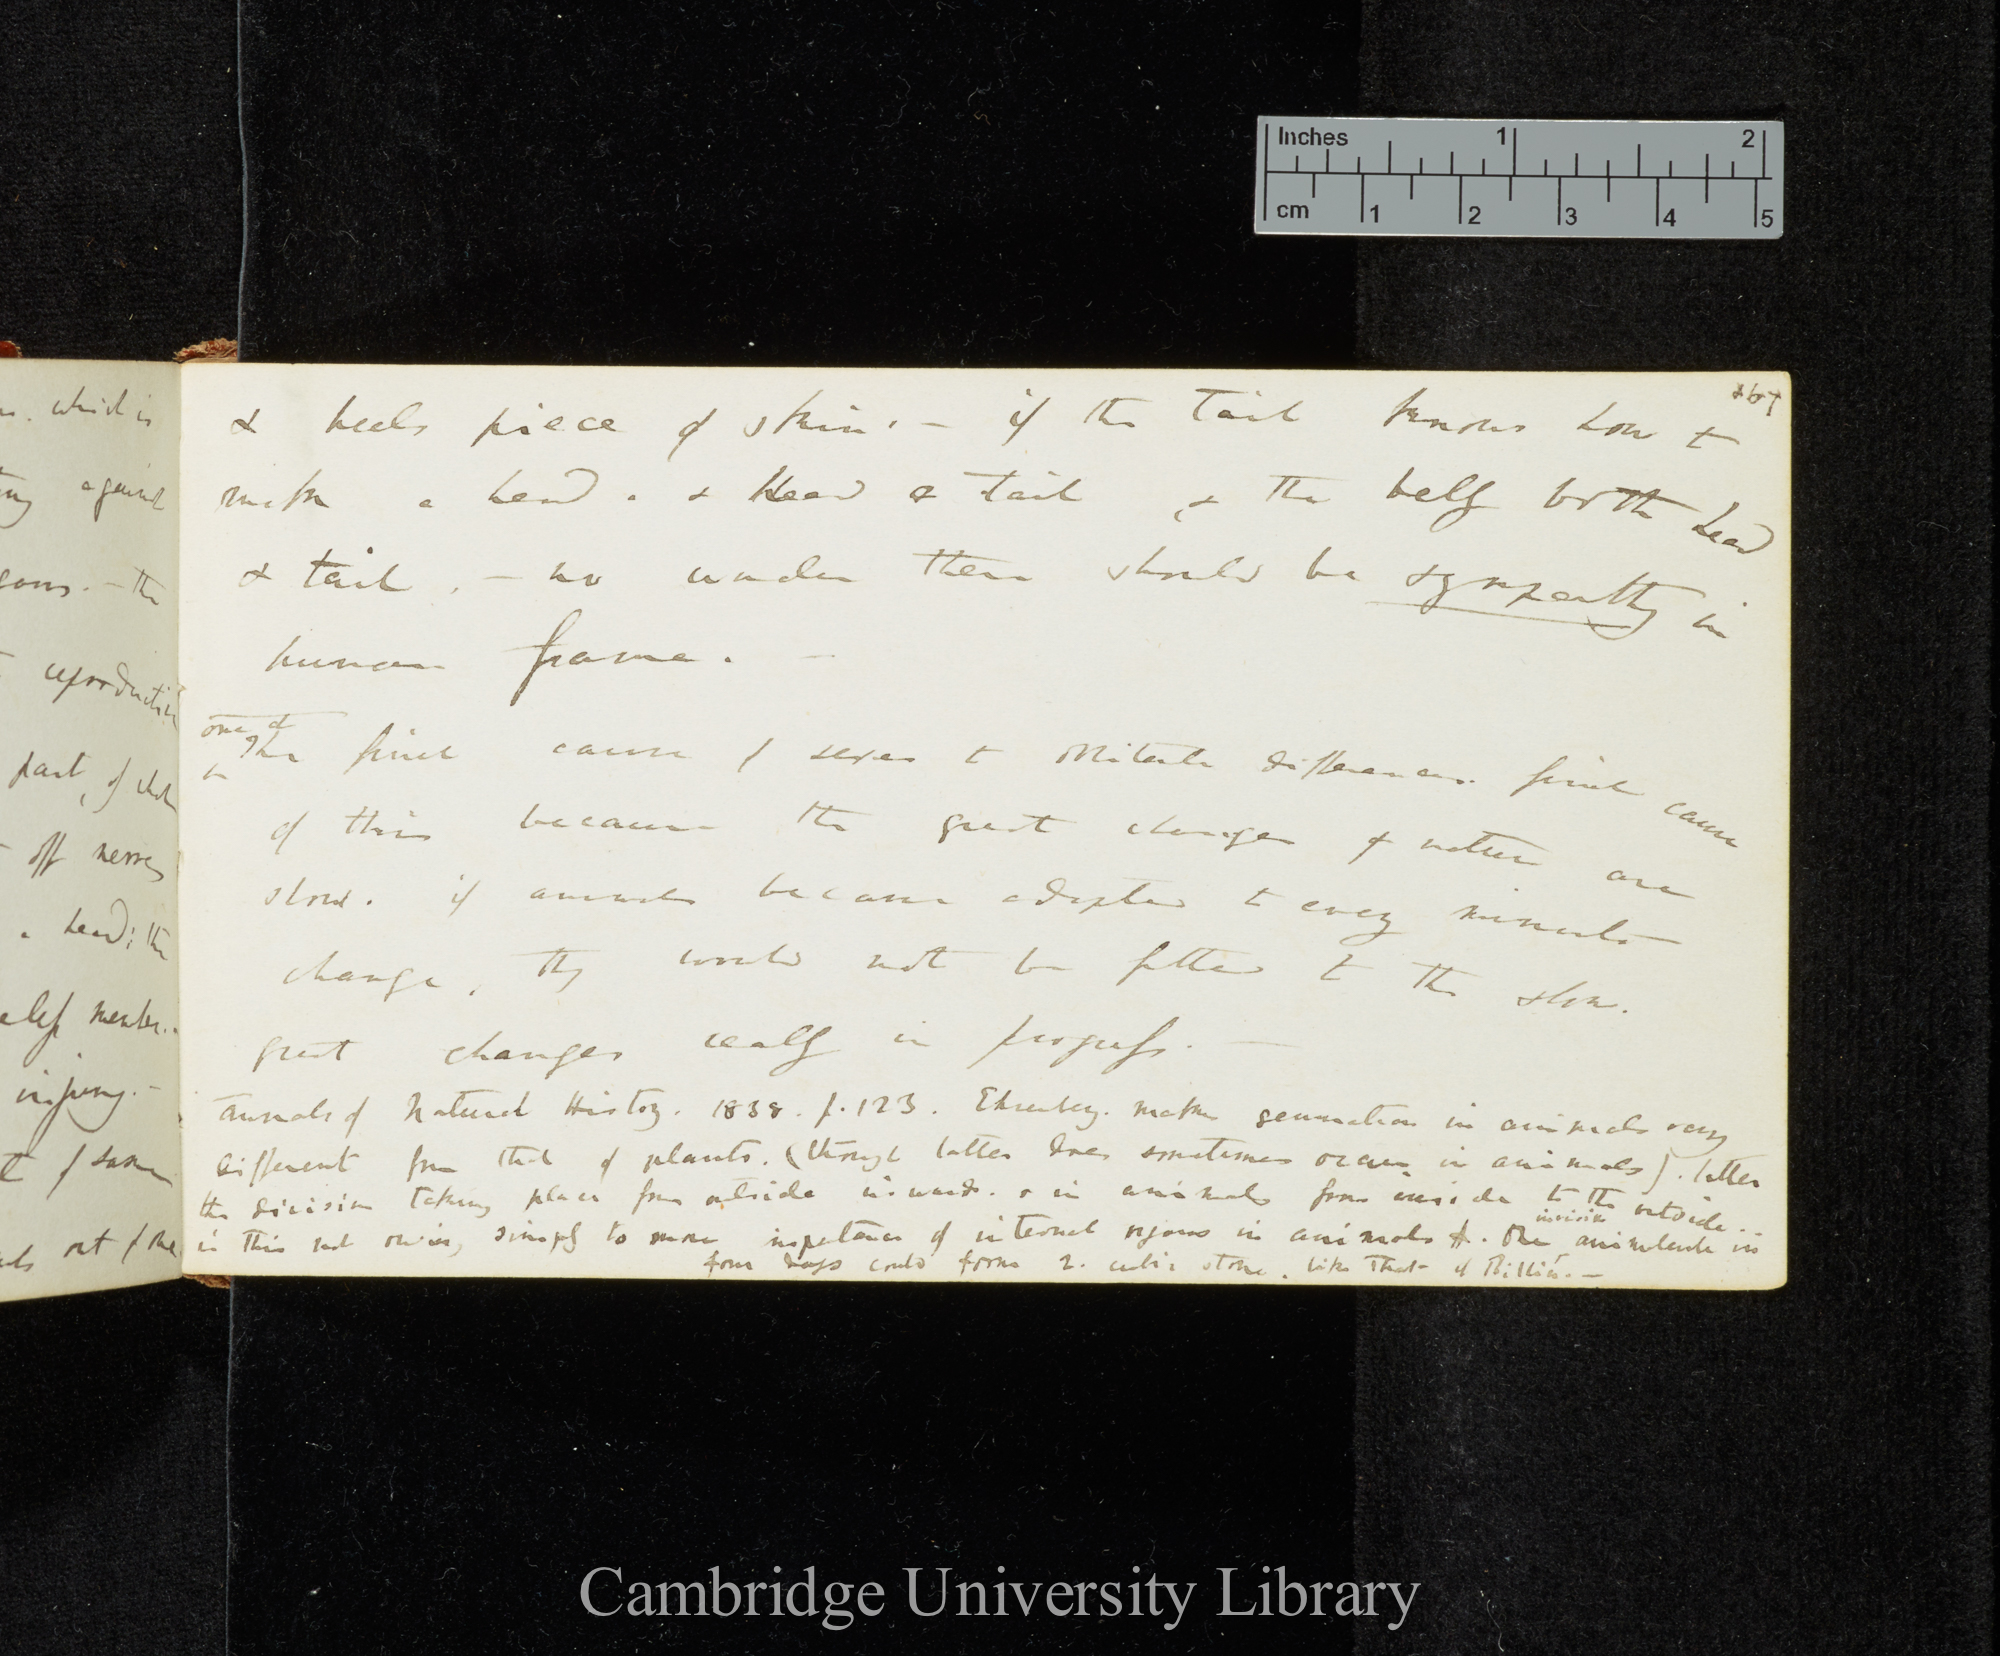 w. which is
ing against
gans. — the
reproduction
part, of whole
off nerves
a head: the
useless member..
injury. —
of same
out of the
167
& heals piece of skin. — if the tail knows how to
make a head. & Head a tail & the half both head
& tail. — no wonder there should be sympathy in
human frame. —
one of
The final cause of sexes to obliterate differences. final cause
of this because the great changes of nature are
slow. if animals became adapted to every minute
change, they would not be fitted to the slow.
great changes really in progress. —
Annals of Natural History. 1838. p. 123. Ehrenberg. makes gemmation in animals very
different from that of plants. (though latter does sometimes occur in animals). latter
the division taking place from outside inwards. & in animals from inside to the outside. —
is this not owing simply to more importance of internal organs in animals. One invisible animalcule in
four days could form 2. cubic stone. like that of Billin. —
Inches 1 2
cm 1 2 3 4 5
Cambridge University Library